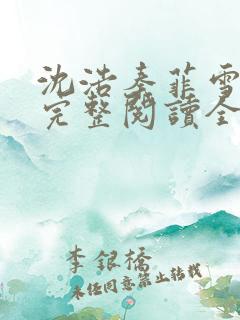 沈浩秦菲雪
完整閱讀全
李銀橋
未经同意禁止转载